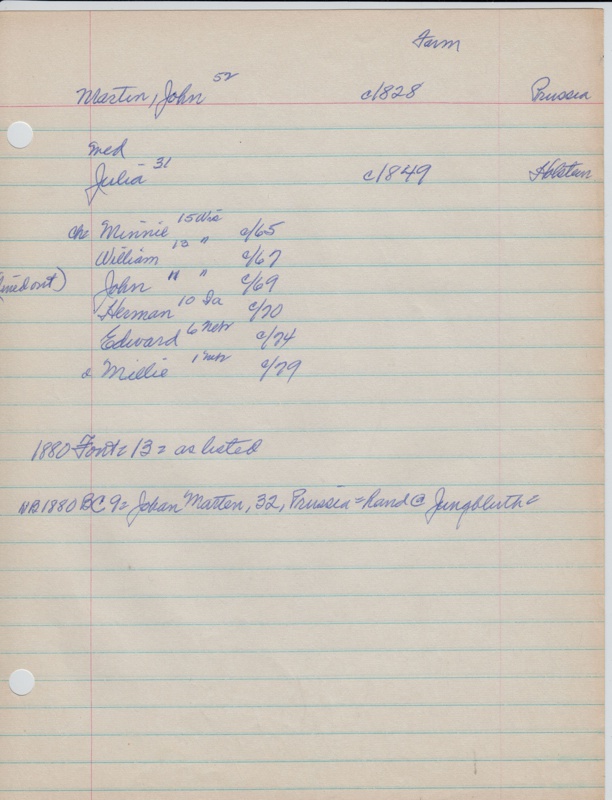 Farm
Martin, John 52 c/1828 Prussia
med
Julia 31 c/1849 Holstein
che Minnie 15 Wis c/65
William 13 " c/67
(lined out) John 11 " c/69
Herman 10 Ia c/70
Edward 6 Nebr c/74
o Millie 1 Nebr c/79
1880 Font = 13 = as listed
NB 1880 BC 9 = Johan Matten, 32, Prussia = hand @ Jungbluth =